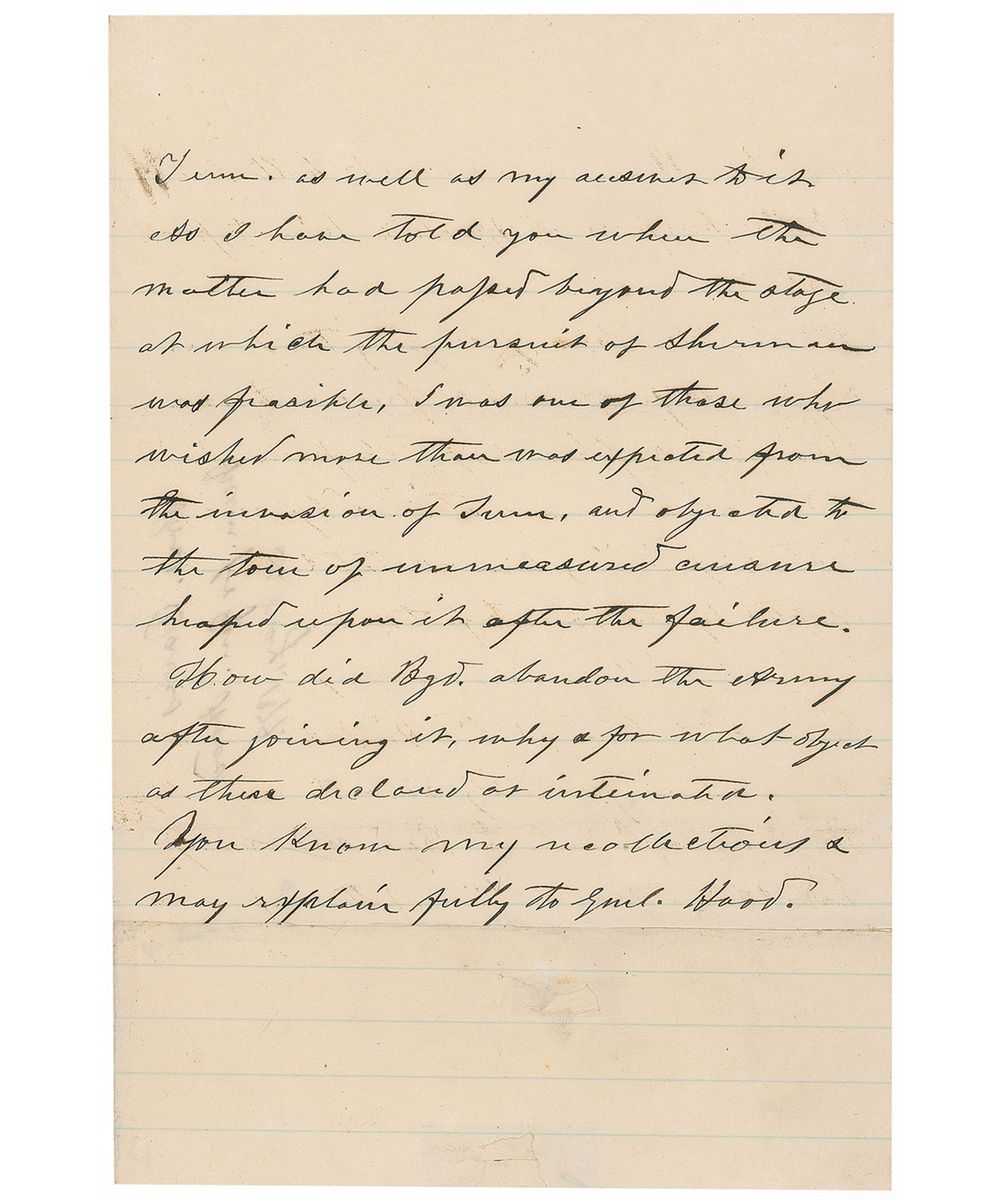 Tenn. as well as my answer to it.
As I have told you when the
matter had passed beyond the stage
at which the pursuit of Sherman
was feasible, I was one of those who
wished more than was expected from
the invasion of Tenn, and objected to
the tone of unmeasured censure
heaped upon it after the failure.
How did Bgd. abandon the Army
after joining it, why & for what object
as then declared or intimated.
You know my recollections &
may explain fully to Genl. Hood.